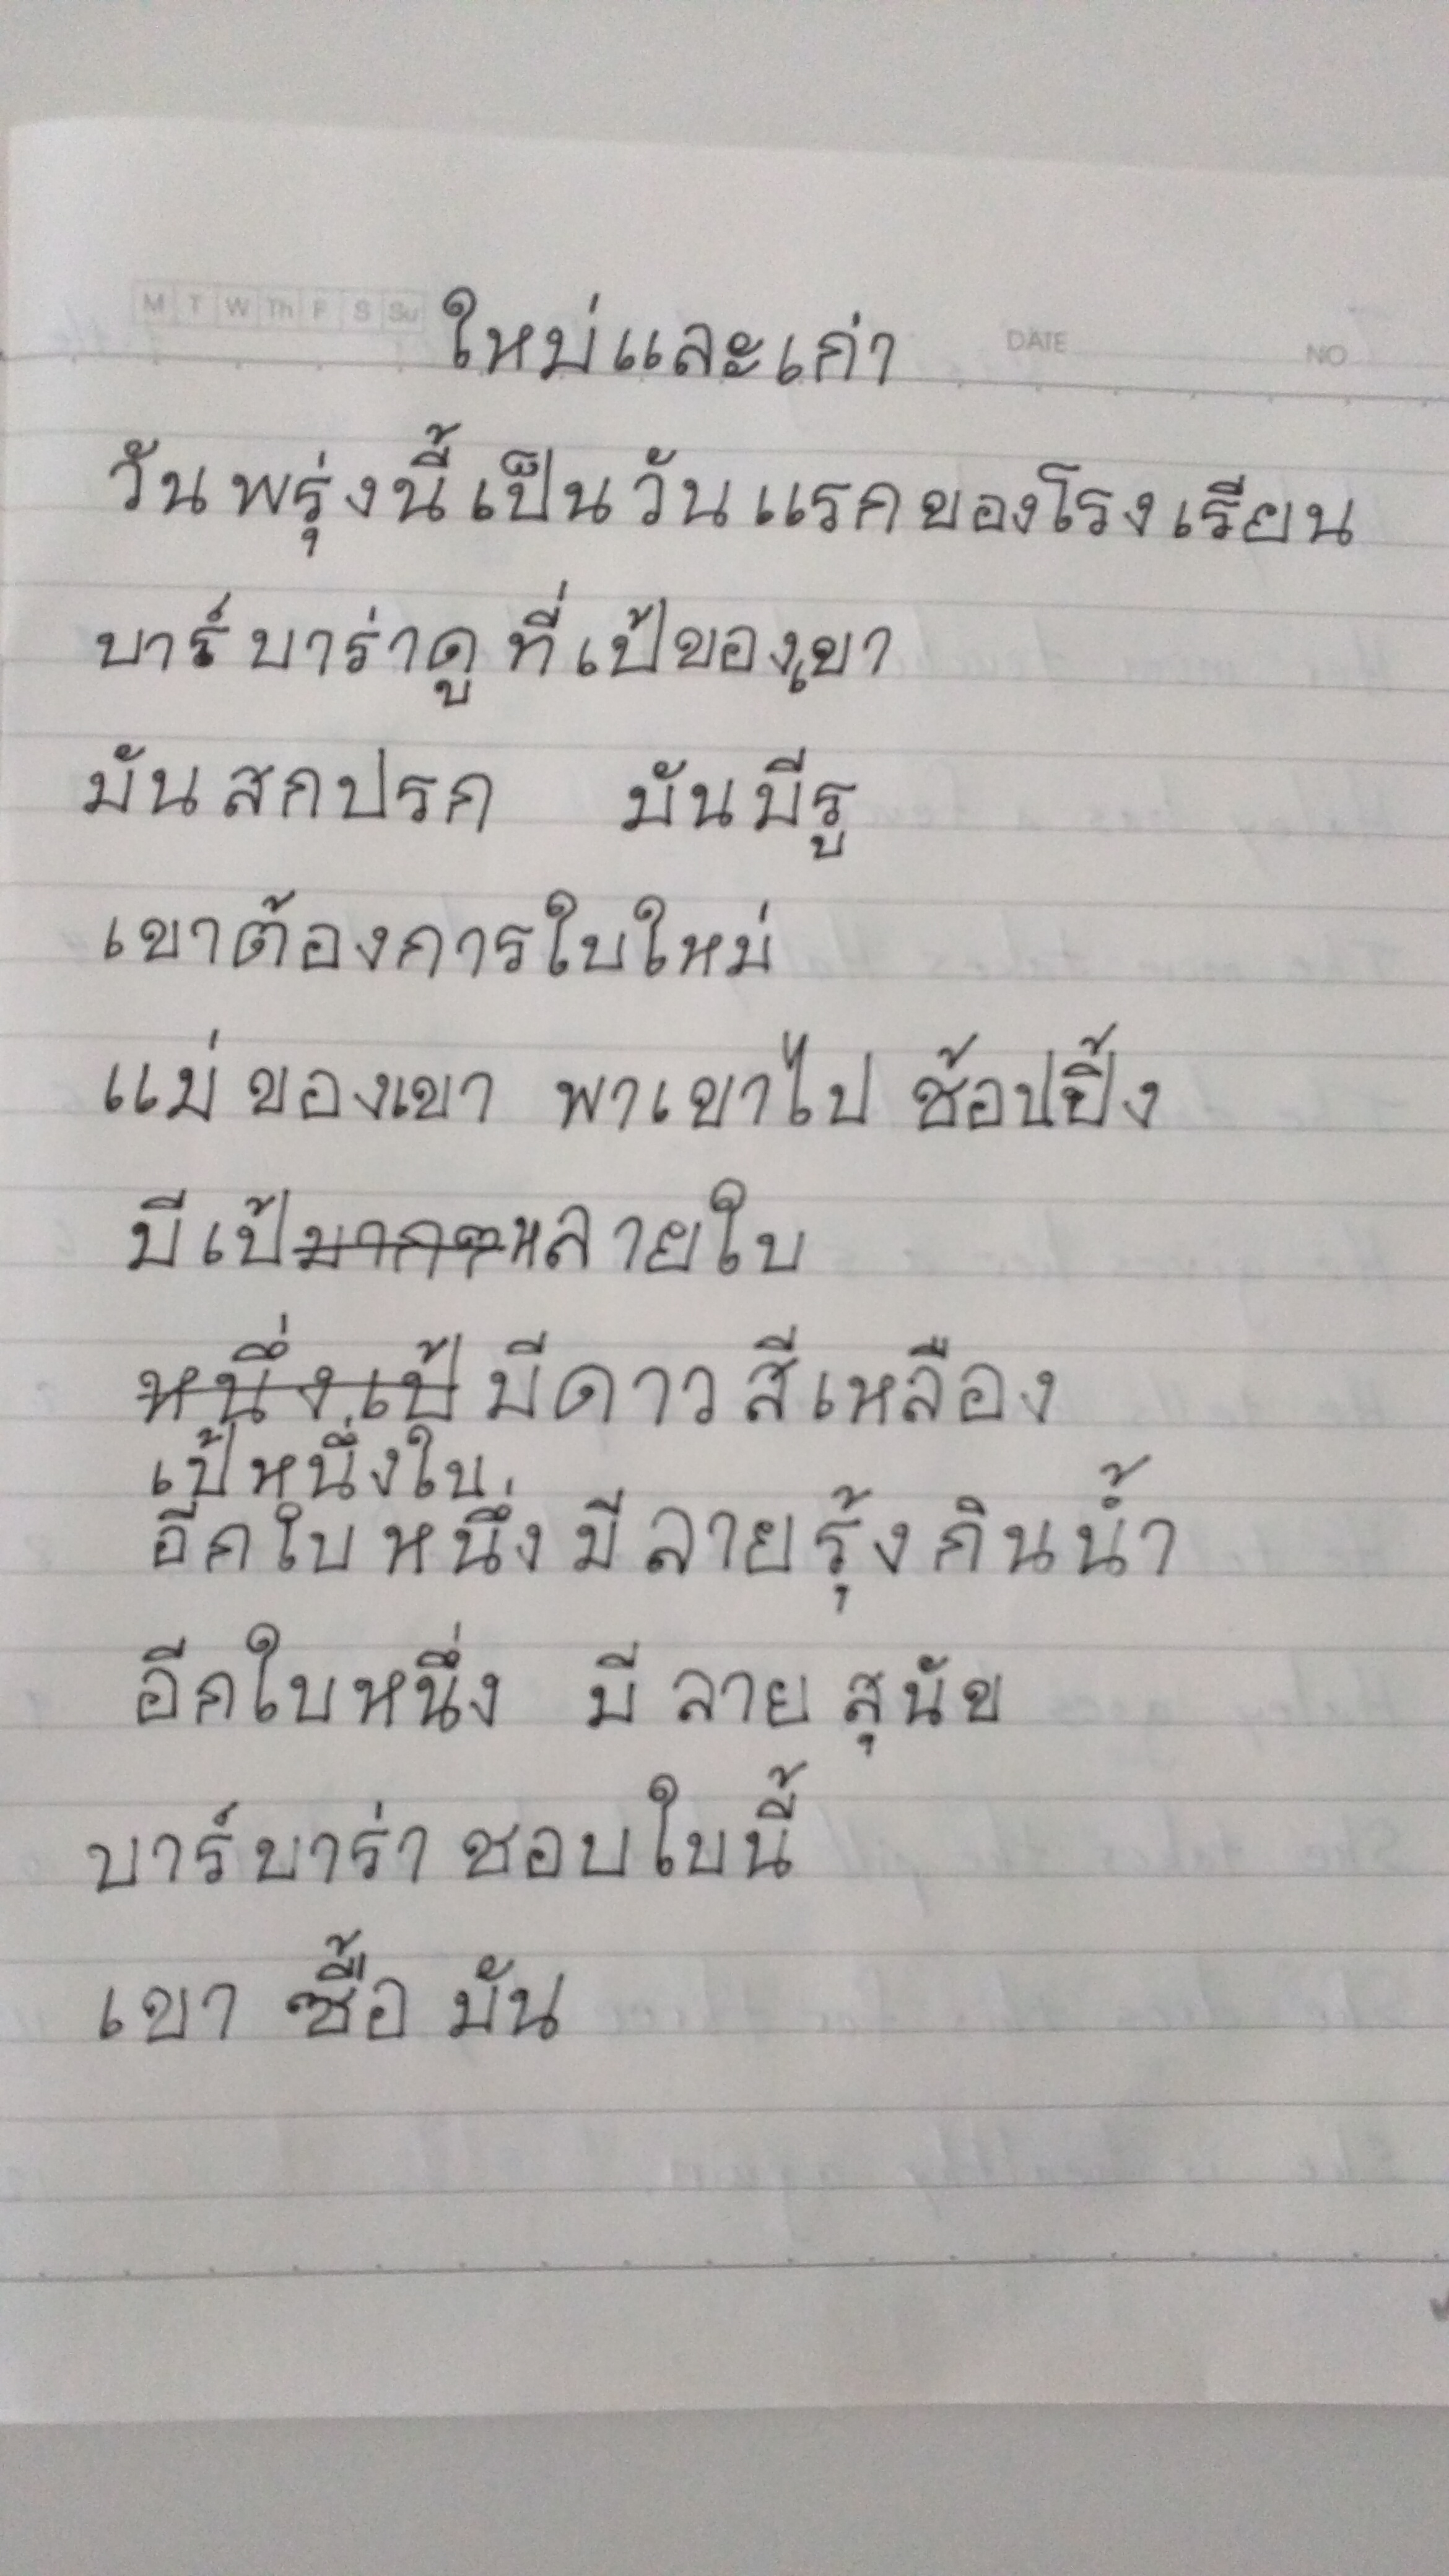 M T W Th F S Su
ใหม่และเก่า
DATE NO
วันพรุ่งนี้เป็นวันแรกของโรงเรียน
บาร์บาร่าดูที่เป้ของเขา
มันสกปรก มันมีรู
เขาต้องการใบใหม่
แม่ของเขา พาเขาไป ช้อปปิ้ง
มีเป้มากๆหลายใบ
หนึ่งเป้ มีดาวสีเหลือง
เป้หนึ่งใบ
อีกใบหนึ่งมีลายรุ้งกินน้ำ
อีกใบหนึ่ง มี ลาย สุนัข
บาร์บาร่า ชอบใบนี้
เขา ซื้อ มัน